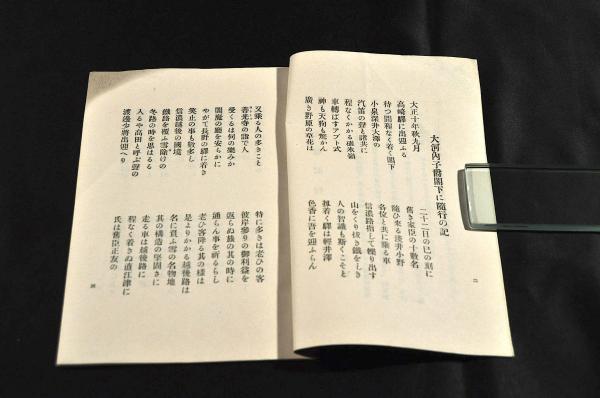 大河內子爵閣下に隨行の記
大正十年秋九月
二十二日の巳の刻に
高崎驛に出迎ふる
舊き家臣の十數名
待つ間程なく着く閣下
隨ひ來る淺井小野
小泉深井大澤の
各位と共に陸る車
汽笛の聲と諸共に
信濃路指して轢り出す
程なくかゝる碓氷嶺
山をくり拔き鐵をしき
車轉ばすアプト式
人の智識も斯くこそと
神も天狗も驚かん
軈着く驛は輕井澤
廣き野原の草花は
色香に吾を迎ふらん
二
又乘る人の多きこと
特に多きは老ひの客
善光寺の詣で人
彼岸參りの御利益を
受くるは何の樂みか
返らぬ旅の其の時に
閻魔の廳を安らかに
通らん事を祈るらし
やがて長野の驛に着き
老ひ客降る其の樣は
笑止の事も數多し
是よりかゝる越後路は
信濃越後の國境
名に負ふ雪の名物地
鐵路を覆ふ雪除けの
其の構造の堅固さに
冬路の時を思はるる
走る車は越後路に
入るや高田と呼ぶ聲の
程なく着きぬ直江津に
渡邊少將出迎へり
氏は舊臣正友の